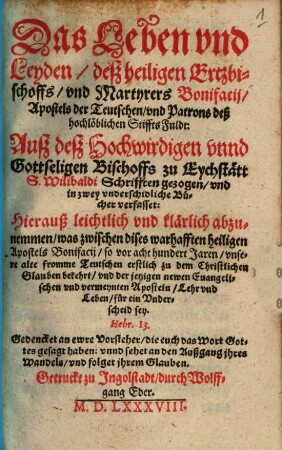 1
Das Leben vnd
Leyden / deß heiligen Ertzbi-
schoffs / vnd Martyrers Bonifacij /
Apostels der Teutschen / vnd Patrons deß
hochlöblichen Stiffts Fuldt:
Auß deß Hochwirdigen vnnd
Gottseligen Bischoffs zu Eychstätt
S. Wilibaldi Schrifften gezogen / vnd
in zwey vnderschidliche Bü-
cher verfasset:
Hierauß leichtlich vnd klärlich abzu-
nemmen / was zwischen dises warhafften heiligen
Apostels Bonifacij / so vor acht hundert Jaren / vnse-
re alte fromme Teutschen erstlich zu dem Christlichen
Glauben bekehrt / vnd der jetzigen newen Euangeli-
schen vnd vermeynten Aposteln / Lehr vnd
Leben / für ein Vnder-
scheid sey.
Hebr. 13.
Gedencket an ewre Vorsteher / die euch das Wort Got-
tes gesagt haben: vnnd sehet an den Außgang jhres
Wandels / vnd folget jhrem Glauben.
Getruckt zu Ingolstadt / durch Wolff-
gang Eder.
M. D. LXXXVIII.